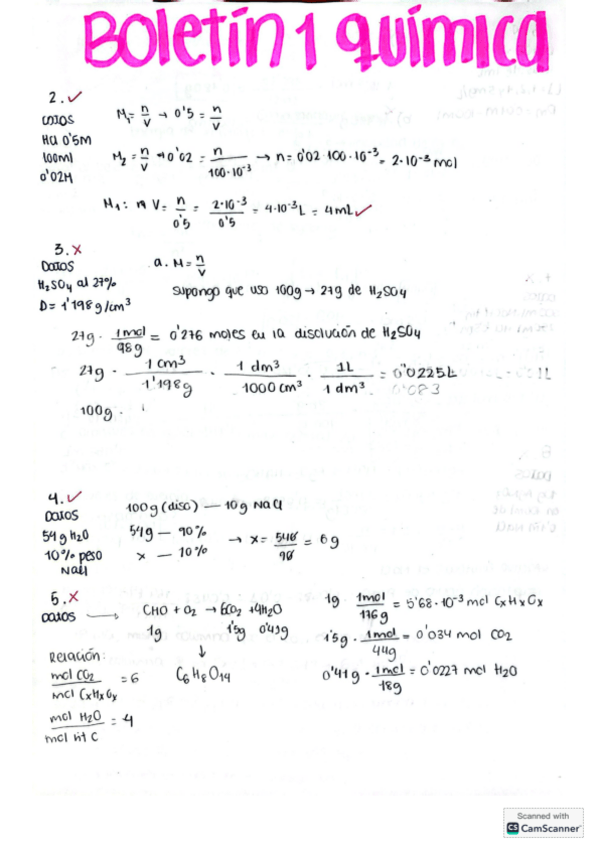 Boletín 1 química
2. ✓
Datos
HCl 0'5M
100ml
0'02M
M₁ = n/V → 0'5 = n/V
M₂ = n/V → 0'02 = n/100·10⁻³ → n = 0'02·100·10⁻³ = 2·10⁻³ mol
V = n/0'5 = 2·10⁻³/0'5 = 4·10⁻³L = 4mL ✓
3. ✗
Datos
H₂SO₄ al 27%
D = 1'198 g/cm³
a. M = n/V
Supongo que uso 100g → 27g de H₂SO₄
27g · 1mol/98g = 0'276 moles en la disolución de H₂SO₄
27g · 1 cm³/1'198g · 1 dm³/1000 cm³ · 1L/1 dm³ = 0'0225L
0'083
100g ·
4. ✓
Datos
54g H₂O
10% peso
NaCl
100g (disc) — 10g NaCl
54g — 90%
x — 10%
→ x = 540/90 = 6g
5. ✗
Datos →
CHO + O₂ → 6CO₂ + 4H₂O
1g 1'5g 0'41g
↓
C₆H₈O₁₄
Relación:
mol CO₂/mol CxHxOx = 6
mol H₂O/mol vit C = 4
1g · 1mol/176g = 5'68·10⁻³ mol CxHxOx
1'5g · 1mol/44g = 0'034 mol CO₂
0'41g · 1mol/18g = 0'0227 mol H₂O
Scanned with
CS CamScanner